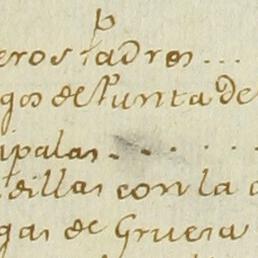 p
eros padres...
gos de punta de
ipalas. - . . . .
dillas con la
gas de Gruesa